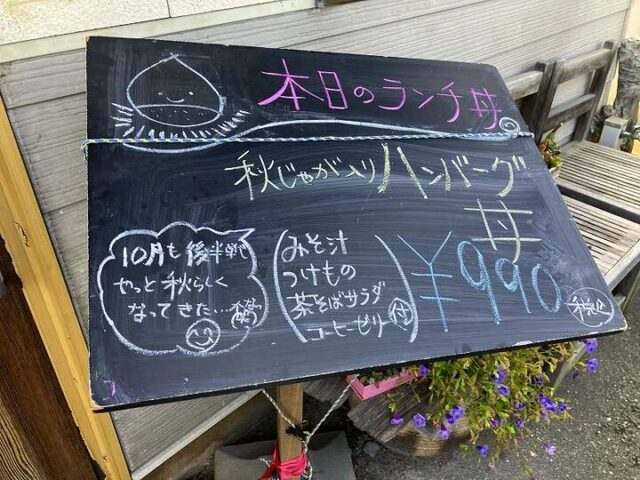 本日のランチ丼
秋じゃが入り ハンバーグ
丼
10月も後半戦
やっと秋らしく
なってきた…
みそ汁
つけもの
茶そばサラダ
コーヒーゼリー
付
¥990
税込